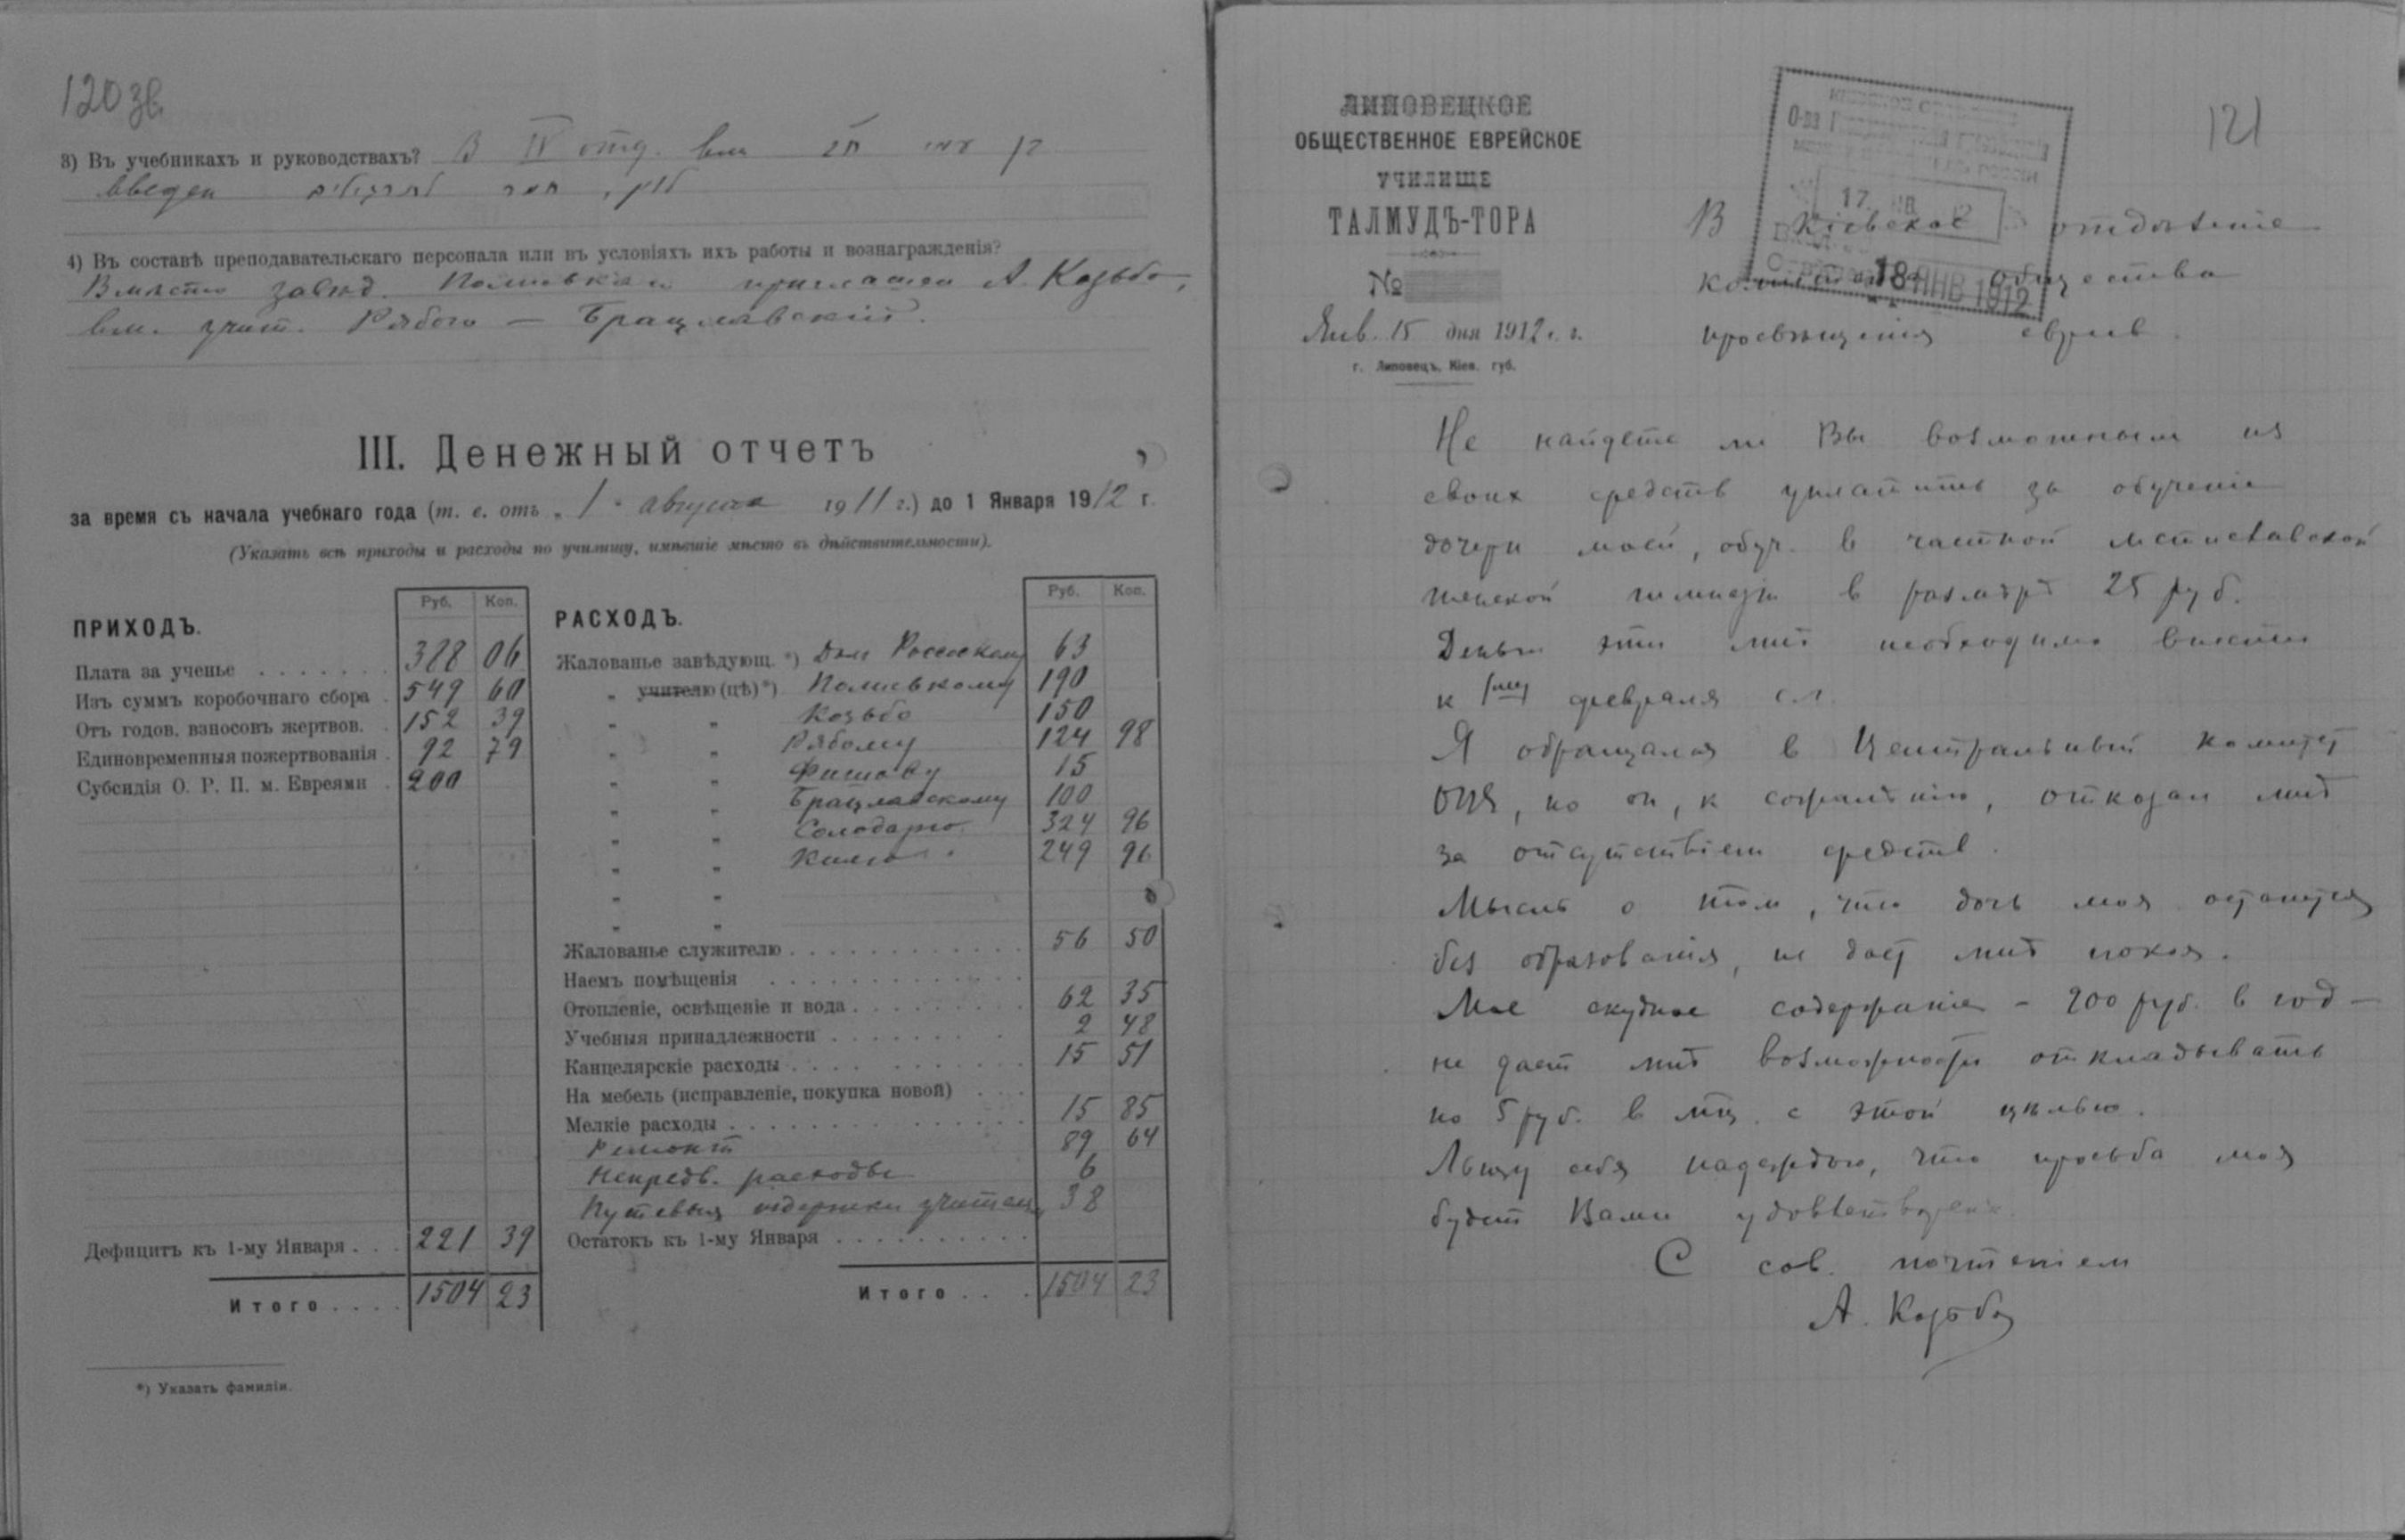 120 зв.
3) Въ учебникахъ и руководствахъ? В IV отд. вм.
введен
4) Въ составѣ преподавательскаго персонала или въ условіяхъ ихъ работы и вознагражденія?
Вмѣсто завѣд. приглашен А. Козьбо,
вм. учит. Рябого — Брацлавскій.
III. Денежный отчетъ
за время съ начала учебнаго года (т. е. отъ „1" августа 1911 г.) до 1 Января 1912 г.
(Указать всѣ приходы и расходы по училищу, имѣвшіе мѣсто въ дѣйствительности).
ПРИХОДЪ. Руб. Коп.
Плата за ученье 388 06
Изъ суммъ коробочнаго сбора 549 60
Отъ годов. взносовъ жертвов. 152 39
Единовременныя пожертвованія 92 79
Субсидія О. Р. П. м. Евреями 200
Дефицитъ къ 1-му Января 221 39
Итого 1504 23
РАСХОДЪ. Руб. Коп.
Жалованье завѣдующ. *) 63
„ учителю (цѣ) *) 190
„ „ Козьбо 150
„ „ Рябому 124 98
„ „ 15
„ „ Брацлавскому 100
„ „ 324 96
„ „ 249 96
„ „
„ „
Жалованье служителю 56 50
Наемъ помѣщенія
Отопленіе, освѣщеніе и вода 62 35
Учебныя принадлежности 2 48
Канцелярскіе расходы 15 51
На мебель (исправленіе, покупка новой)
Мелкіе расходы 15 85
Ремонт 89 64
Непредв. расходы 6
Путевыя издержки учителя 38
Остатокъ къ 1-му Января
Итого 1504 23
*) Указать фамиліи.
121
ЛИПОВЕЦКОЕ
ОБЩЕСТВЕННОЕ ЕВРЕЙСКОЕ
УЧИЛИЩЕ
ТАЛМУДЪ-ТОРА
№
Янв. 15 дня 1912 г.
г. Липовецъ, Кіев. губ.
18 ЯНВ 1912
В Кіевское отдѣленіе
комитета Общества
просвѣщенія евреев.
Не найдете ли Вы возможным из
своих средств уплатить за обученіе
дочери моей, обуч. в частной мстиславской
женской гимназіи в размѣрѣ 25 руб.
Деньги эти мнѣ необходимо внести
к 1му февраля с.г.
Я обращался в Центральный Комитет
ОПЕ, но он, к сожалѣнію, отказал мнѣ
за отсутствіем средств.
Мысль о том, что дочь моя останется
без образованія, не дает мнѣ покоя.
Мое скудное содержаніе - 900 руб. в год -
не дает мнѣ возможности откладывать
по 5 руб. в мц. с этой цѣлью.
Льщу себя надеждою, что просьба моя
будет Вами удовлетворена.
С сов. почтеніем
А. Козьбо